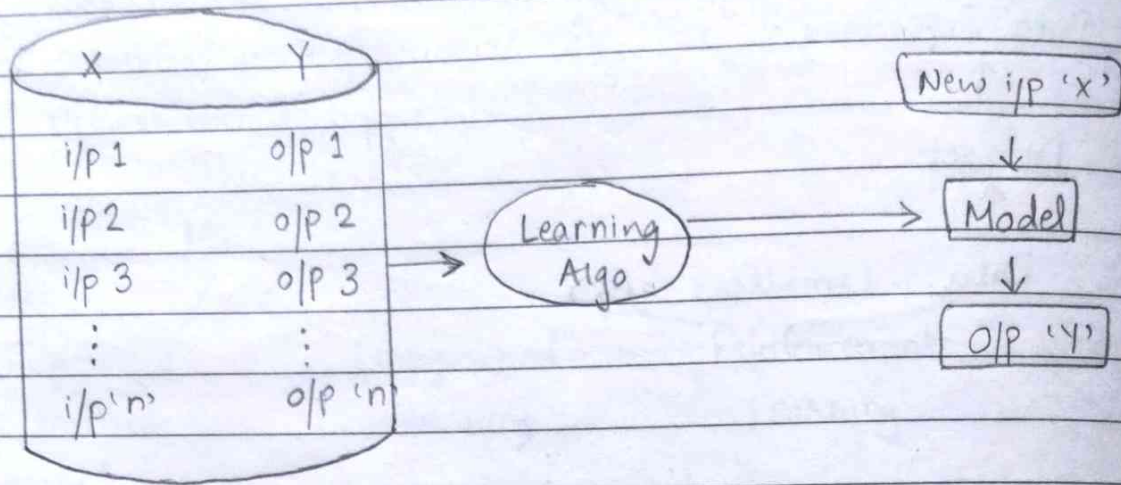 X Y
i/p 1 o/p 1
i/p 2 o/p 2
i/p 3 o/p 3
⋮ ⋮
i/p 'n' o/p 'n'
Learning
Algo
New i/p 'x'
Model
O/p 'Y'